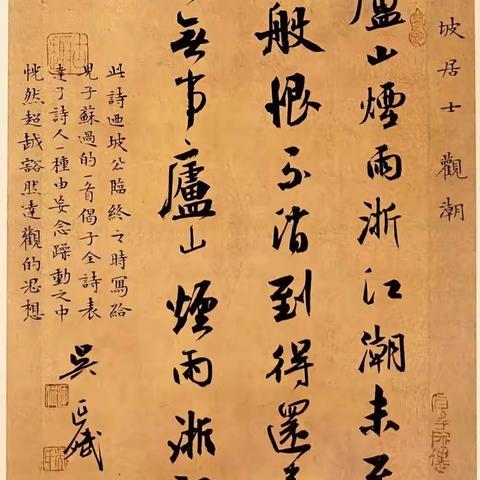 坡居士 觀潮
廬山煙雨浙江潮未至
般恨不消到得還來
無事廬山煙雨浙江
此詩迺坡公臨終之時寫給
兒子蘇過的一首偈子全詩表
達了詩人一種由妄念躁動之中
恍然超越豁然達觀的思想
吳